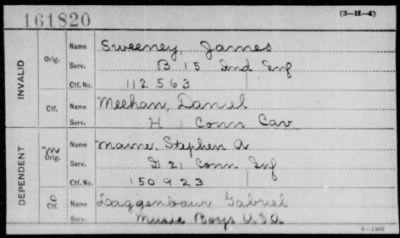 161820
(3-H-4)
INVALID
Orig. Name Sweeney, James
Serv. B 15 Ind Inf
Ctf. No. 112563
Ctf. Name Meehan, Daniel
Serv. H 1 Conn Cav
DEPENDENT
m Orig. Name Marne, Stephen A
Serv. D 21 Conn Inf
Ctf. No. 150923
C Ctf. Name Laggenbaur Gabriel
Serv. Music Boys USA